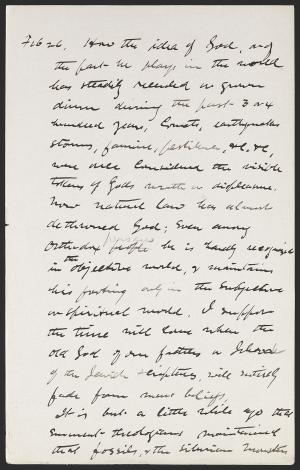 Feb 26. How the idea of God, and
the part he plays in the world
has steadily receded or grown
dim during the past 3 or 4
hundred years, Comets, earthquakes
storms, famine, pestilence, &c, &c,
were once considered the visible
tokens of Gods wrath or displeasure.
Now natural law has almost
dethroned God; Even among
Orthodox people he is hardly recognized
in the objective world, & maintains
his footing only in the subjective
or spiritual world. I suppose
the time will come when the
old God of our fathers or Jehovah
of the Jewish scriptures, will entirely
fade from mens beliefs,
It is but a little while ago that
eminent theologians maintained
that fossils, & the silurian monsters